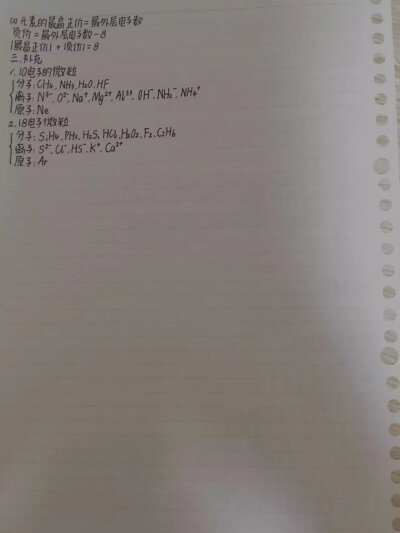 (2) 元素的最高正价=最外层电子数
负价=最外层电子数-8
|最高正价|+|负价|=8
三.补充
1.10电子的微粒
分子:CH₄、NH₃、H₂O、HF
离子:N³⁻、O²⁻、Na⁺、Mg²⁺、Al³⁺、OH⁻、NH₂⁻、NH₄⁺
原子:Ne
2.18电子微粒
分子:SiH₄、PH₃、H₂S、HCl、H₂O₂、F₂、C₂H₆
离子:S²⁻、Cl⁻、HS⁻、K⁺、Ca²⁺
原子:Ar